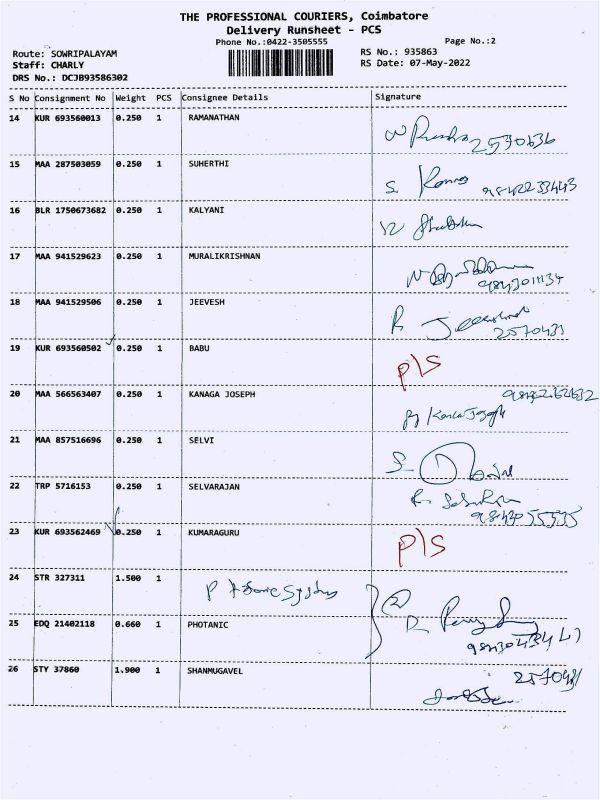 THE PROFESSIONAL COURIERS, Coimbatore
Delivery Runsheet - PCS
Phone No.:0422-3505555
Page No.:2
Route: SOWRIPALAYAM
RS No.: 935863
Staff: CHARLY
RS Date: 07-May-2022
DRS No.: DCJB93586302
S No Consignment No Weight PCS Consignee Details Signature
14 KUR 693560013 0.250 1 RAMANATHAN
2570636
15 MAA 287503059 0.250 1 SUHERTHI
S
16 BLR 1750673682 0.250 1 KALYANI
17 MAA 941529623 0.250 1 MURALIKRISHNAN
18 MAA 941529506 0.250 1 JEEVESH
R
19 KUR 693560502 0.250 1 BABU
P/S
20 MAA 566563407 0.250 1 KANAGA JOSEPH
21 MAA 857516696 0.250 1 SELVI
22 TRP 5716153 0.250 1 SELVARAJAN
23 KUR 693562469 0.250 1 KUMARAGURU
P/S
24 STR 327311 1.500 1
P
2
25 EDQ 21402118 0.660 1 PHOTANIC
26 STY 37860 1.900 1 SHANMUGAVEL